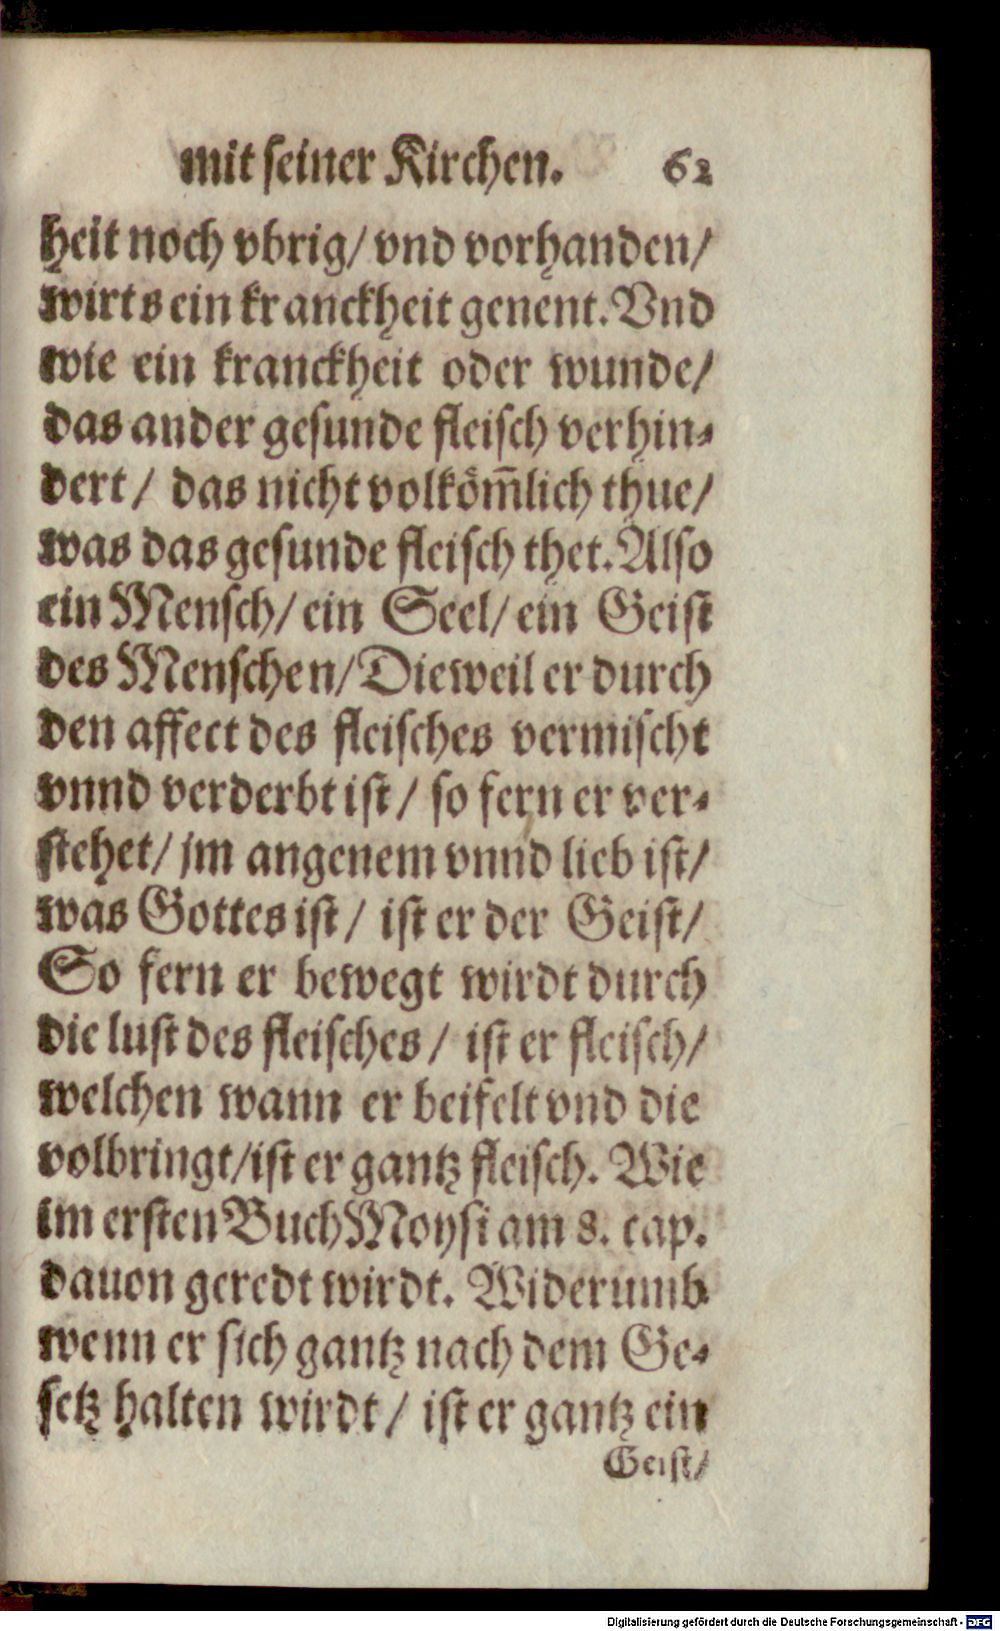 mit seiner Kirchen. 62
heit noch vbrig/ vnd vorhanden/
wirts ein kranckheit genent. Vnd
wie ein kranckheit oder wunde/
das ander gesunde fleisch verhin⸗
dert/ das nicht volköm̃lich thue/
was das gesunde fleisch thet. Also
ein Mensch/ ein Seel/ ein Geist
des Menschen/ Dieweil er durch
den affect des fleisches vermischt
vnnd verderbt ist/ so fern er ver⸗
stehet/ jm angenem vnnd lieb ist/
was Gottes ist/ ist er der Geist/
So fern er bewegt wirdt durch
die lust des fleisches/ ist er fleisch/
welchen wann er beifelt vnd die
volbringt/ ist er gantz fleisch. Wie
im ersten Buch Moysi am 8. cap.
dauon geredt wirdt. Widerumb
wenn er sich gantz nach dem Ge⸗
setz halten wirdt/ ist er gantz ein
Geist/
Digitalisierung gefördert durch die Deutsche Forschungsgemeinschaft - DFG